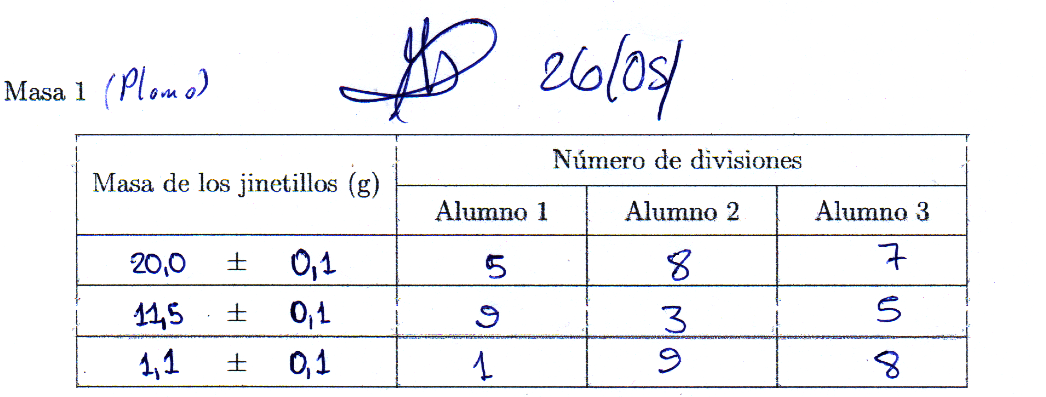 26/05/
Masa 1 (Plomo)
Masa de los jinetillos (g) Número de divisiones
Alumno 1 Alumno 2 Alumno 3
20,0 ± 0,1 5 8 7
11,5 ± 0,1 9 3 5
1,1 ± 0,1 1 9 8